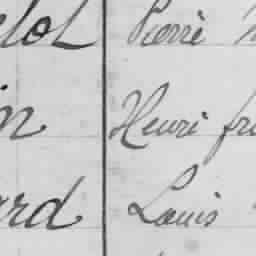 elot Pierre
in Henri
ard Louis